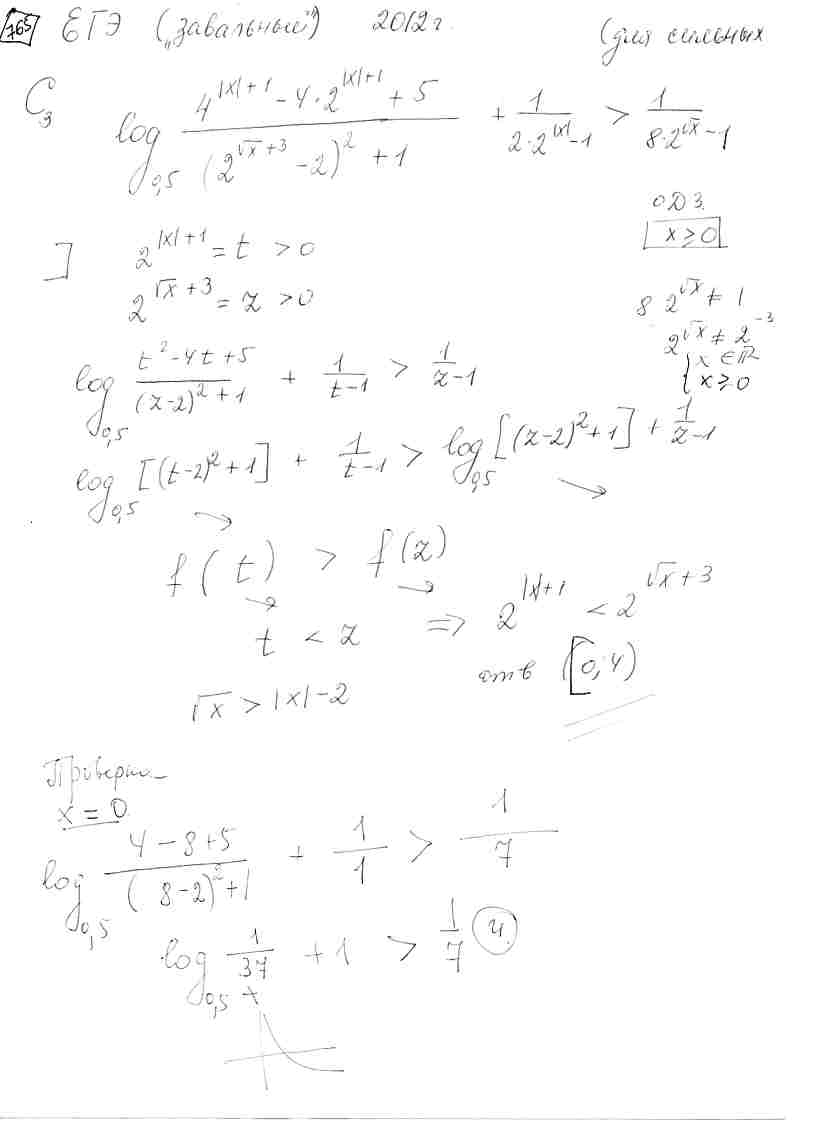 765 ЕГЭ („завальный") 2012 г. (для сильных
C3 log_{0,5} (4^{|x|+1} - 4·2^{|x|+1} + 5) / ((2^{√x+3} - 2)^2 + 1) + 1/(2·2^{|x|} - 1) > 1/(8·2^{√x} - 1)
ОДЗ.
x ≥ 0
] 2^{|x|+1} = t > 0
2^{√x+3} = z > 0
8 2^{√x} ≠ 1
2^{√x} ≠ 2^{-3}
{ x ∈ ℝ
x ≥ 0
log_{0,5} (t^2 - 4t + 5) / ((z-2)^2 + 1) + 1/(t-1) > 1/(z-1)
log_{0,5} [(t-2)^2 + 1] + 1/(t-1) > log_{0,5} [(z-2)^2 + 1] + 1/(z-1)
f(t) > f(z)
t < z ⇒ 2^{|x|+1} < 2^{√x+3}
√x > |x| - 2
отв [0; 4)
Проверим
x = 0
log_{0,5} (4 - 8 + 5) / ((8-2)^2 + 1) + 1/1 > 1/7
log_{0,5} 1/37 + 1 > 1/7 и.
+